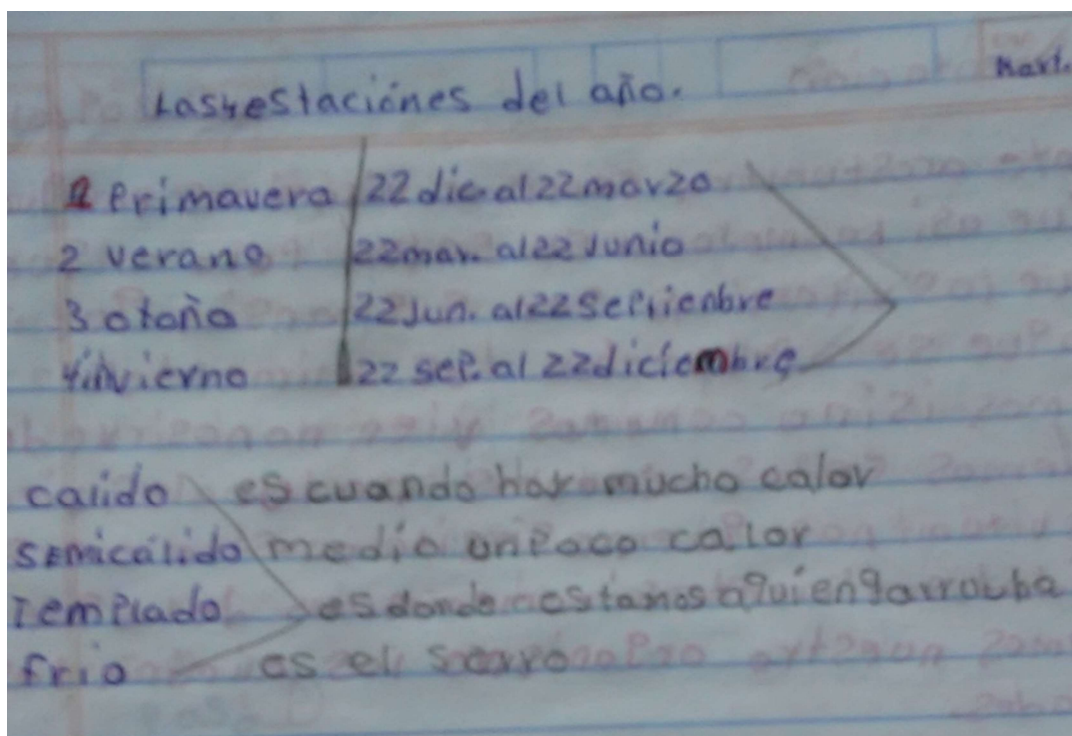 Mart.
Las 4 estaciónes del año.
1 Primavera 22 dic. al 22 marzo
2 verano 22 mar. al 22 Junio
3 otoño 22 Jun. al 22 Septienbre
4 invierno 22 sep. al 22 diciembre
calido es cuando hay mucho calor
semicálido medio un poco calor
Templado es donde estamos aqui en
frio es el serro